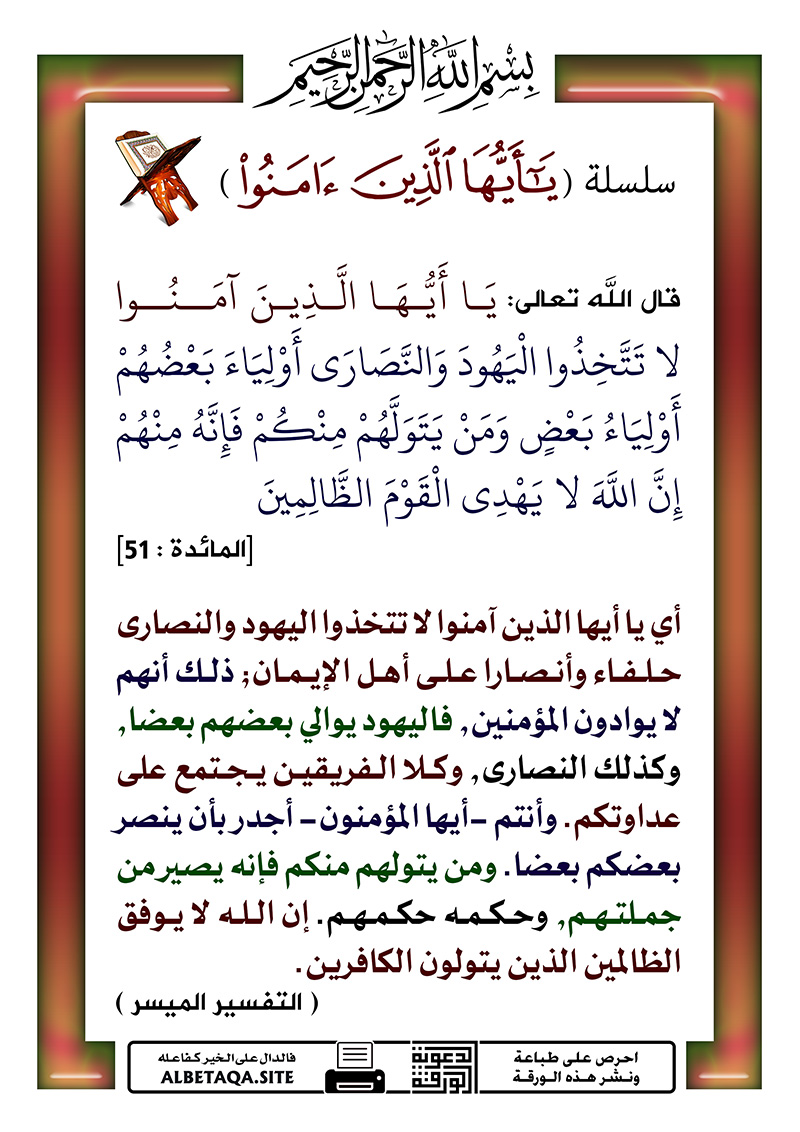 بِسْمِ اللَّهِ الرَّحْمَٰنِ الرَّحِيمِ
سلسلة ( يَٰٓأَيُّهَا ٱلَّذِينَ ءَامَنُوا۟ )
قال اللَّه تعالى: يَـا أَيُّـهَـا الَّـذِيـنَ آمَـــنُـــوا
لا تَتَّخِذُوا الْيَهُودَ وَالنَّصَارَى أَوْلِيَاءَ بَعْضُهُمْ
أَوْلِيَاءُ بَعْضٍ وَمَنْ يَتَوَلَّهُمْ مِنْكُمْ فَإِنَّهُ مِنْهُمْ
إِنَّ اللَّهَ لا يَهْدِى الْقَوْمَ الظَّالِمِينَ
[المائدة : 51]
أي يا أيها الذين آمنوا لا تتخذوا اليهود والنصارى
حلفاء وأنصارا على أهل الإيمان; ذلك أنهم
لا يوادون المؤمنين, فاليهود يوالي بعضهم بعضا,
وكذلك النصارى, وكلا الفريقين يجتمع على
عداوتكم. وأنتم -أيها المؤمنون- أجدر بأن ينصر
بعضكم بعضا. ومن يتولهم منكم فإنه يصير من
جملتهم, وحكمه حكمهم. إن الله لا يوفق
الظالمين الذين يتولون الكافرين.
( التفسير الميسر )
احرص على طباعة
ونشر هذه الورقة
الورقة الدعوية
فالدال على الخير كفاعله
ALBETAQA.SITE